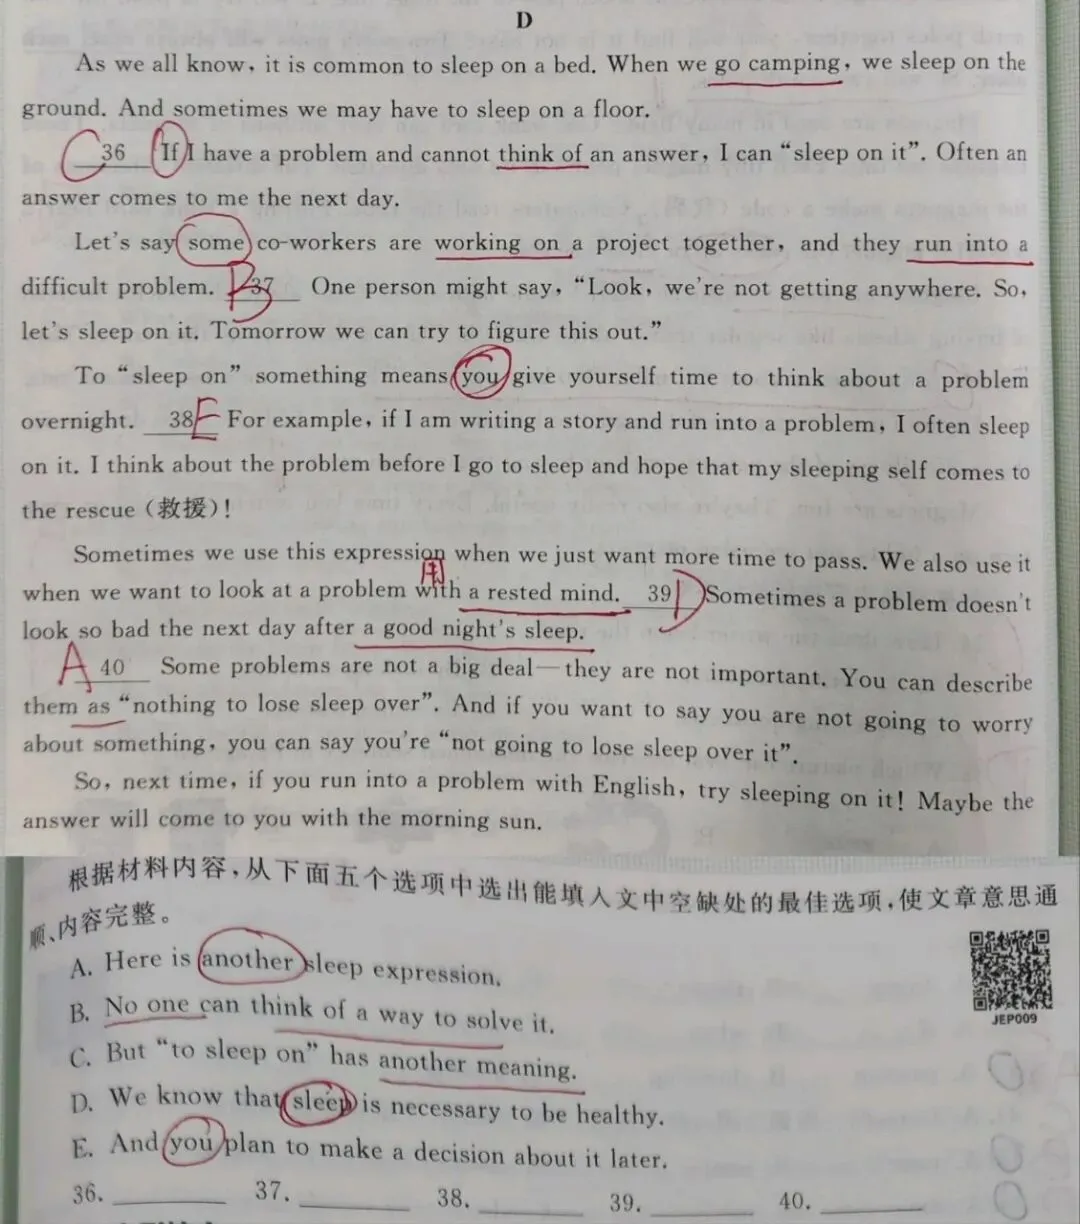 D
As we all know, it is common to sleep on a bed. When we go camping, we sleep on the
ground. And sometimes we may have to sleep on a floor.
C 36 If I have a problem and cannot think of an answer, I can “sleep on it”. Often an
answer comes to me the next day.
Let's say some co-workers are working on a project together, and they run into a
difficult problem. B 37 One person might say, “Look, we're not getting anywhere. So,
let's sleep on it. Tomorrow we can try to figure this out.”
To “sleep on” something means you give yourself time to think about a problem
overnight. 38 E For example, if I am writing a story and run into a problem, I often sleep
on it. I think about the problem before I go to sleep and hope that my sleeping self comes to
the rescue (救援)!
Sometimes we use this expression when we just want more time to pass. We also use it
用
when we want to look at a problem with a rested mind. 39 D Sometimes a problem doesn't
look so bad the next day after a good night's sleep.
A 40 Some problems are not a big deal—they are not important. You can describe
them as “nothing to lose sleep over”. And if you want to say you are not going to worry
about something, you can say you're “not going to lose sleep over it”.
So, next time, if you run into a problem with English, try sleeping on it! Maybe the
answer will come to you with the morning sun.
根据材料内容,从下面五个选项中选出能填入文中空缺处的最佳选项,使文章意思通
顺、内容完整。
A. Here is another sleep expression.
B. No one can think of a way to solve it.
C. But “to sleep on” has another meaning.
D. We know that sleep is necessary to be healthy.
E. And you plan to make a decision about it later.
JEP009
36. 37. 38. 39. 40.